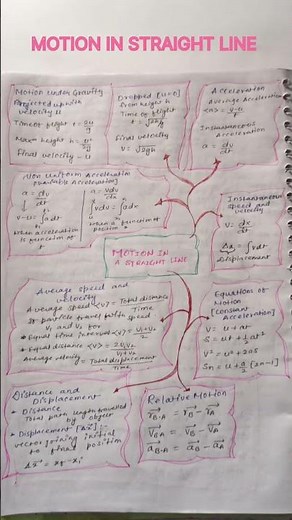 MOTION IN STRAIGHT LINE
Motion under Gravity
Projected up with
velocity u
Time of flight t = 2u/g
Max height h = u²/2g
Final velocity - u
Dropped [u=0]
from height h
Time of
flight
t = √2h/g
Final velocity
v = √2gh
Acceleration
Average Acceleration
Instantaneous
Acceleration
a = dv/dt
Non Uniform Acceleration
[Variable Acceleration]
a = dv/dt
a = vdv/dx
when acceleration
is function of
t
when a function of
position x
Instantaneous
speed and
velocity
v = dx/dt
Δx = ∫vdt
Displacement
MOTION IN
A STRAIGHT LINE
Average speed and
velocity
Average speed <v> = Total distance
Time
If particle travel path in speed
v₁ and v₂ for
• Equal time interval <v> = v₁+v₂/2
• Equal distance <v> = 2v₁v₂/v₁+v₂
Average velocity = Total displacement
Time
Equations of
Motion
[Constant
Acceleration]
V = u + at
S = ut + 1/2 at²
V² = u² + 2as
Sn = u + a/2 [2n-1]
Distance and
Displacement
• Distance
Total path length travelled
by object
• Displacement
vector joining initial
to final position
Relative Motion
r B·A = r B - r A
v B·A = v B - v A
a B·A = a B - a A